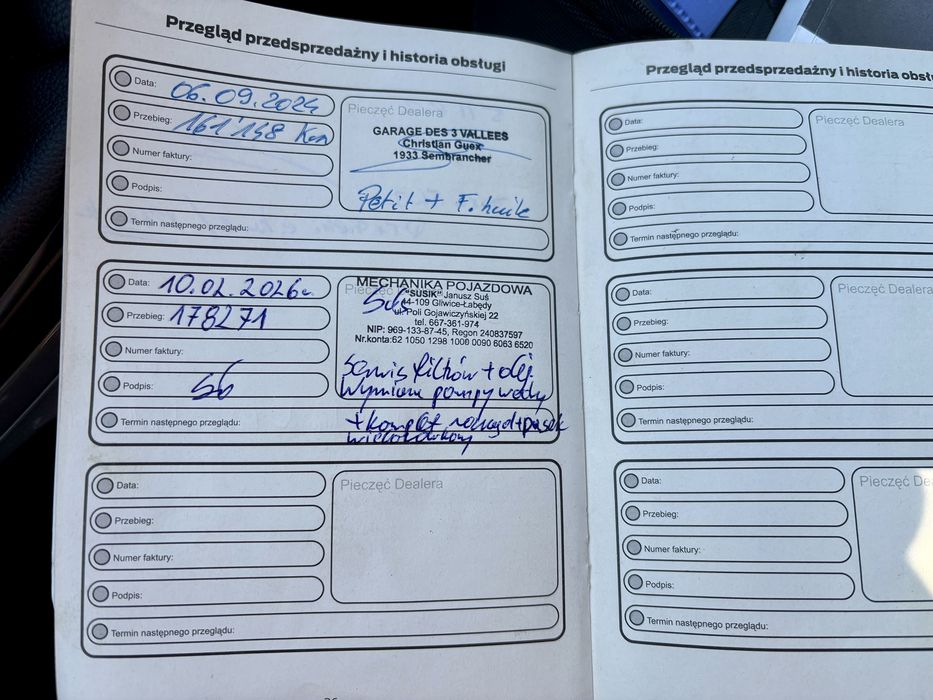 Przegląd przedsprzedażny i historia obsługi
Data: 06.09.2024
Przebieg: 161'148 Km
Numer faktury:
Podpis:
Termin następnego przeglądu:
Pieczęć Dealera
GARAGE DES 3 VALLEES
Christian Guex
1933 Sembrancher
Petit + F. huile
Data: 10.02.2026r.
Przebieg: 178271
Numer faktury:
Podpis:
Termin następnego przeglądu:
MECHANIKA POJAZDOWA
"SUSIK" Janusz Suś
44-109 Gliwice-Łabędy
ul. Poli Gojawiczyńskiej 22
tel. 667-361-974
NIP: 969-133-87-45, Regon 240837597
Nr.konta:62 1050 1298 1000 0090 6063 6520
Serwis filtrów + olej.
Wymiana pompy wody
+ komplet rozrząd + pasek
wieloklinowy
Data:
Przebieg:
Numer faktury:
Podpis:
Termin następnego przeglądu:
Pieczęć Dealera
Przegląd przedsprzedażny i historia obsłu
Data:
Przebieg:
Numer faktury:
Podpis:
Termin następnego przeglądu:
Pieczęć Dealera
Data:
Przebieg:
Numer faktury:
Podpis:
Termin następnego przeglądu:
Pieczęć Dealera
Data:
Przebieg:
Numer faktury:
Podpis:
Termin następnego przeglądu:
Pieczęć De